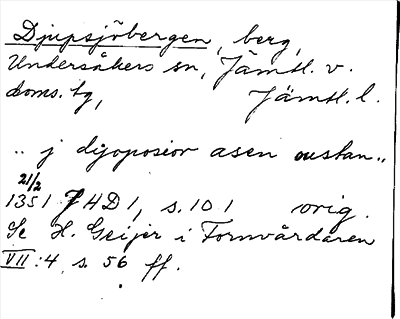 Djupsjöbergen, berg,
Undersåkers sn, Jämtl. v.
doms. tg, Jämtl. l.
.. j diyoposior asen oustan ..
21/2
1351 J4D1, s. 101 orig.
Se H. Geijer i Fornvårdaren
VII:4 s. 56 ff.